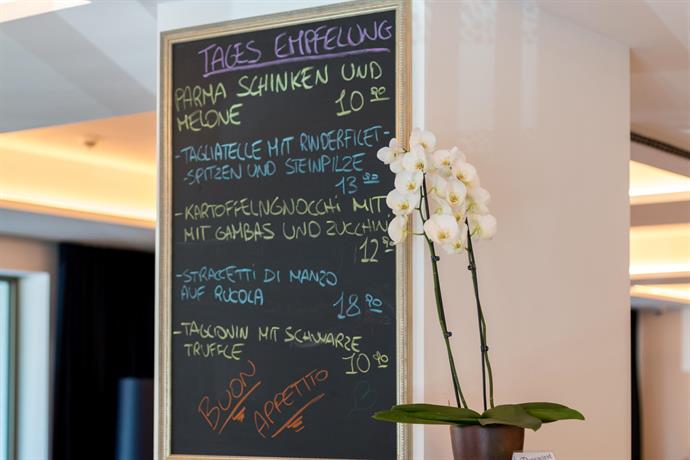 TAGES EMPFELUNG
PARMA SCHINKEN UND
MELONE 10 90
-TAGLIATELLE MIT RINDERFILET-
-SPITZEN UND STEINPILZE
13 90
-KARTOFFELNGNOCCHI MIT
MIT GAMBAS UND ZUCCHINI
12 90
-STRACCETTI DI MANZO
AUF RUCOLA 18 90
-TAGLIONIN MIT SCHWARZE
TRUFFLE 10 90
BUON
APPETITO